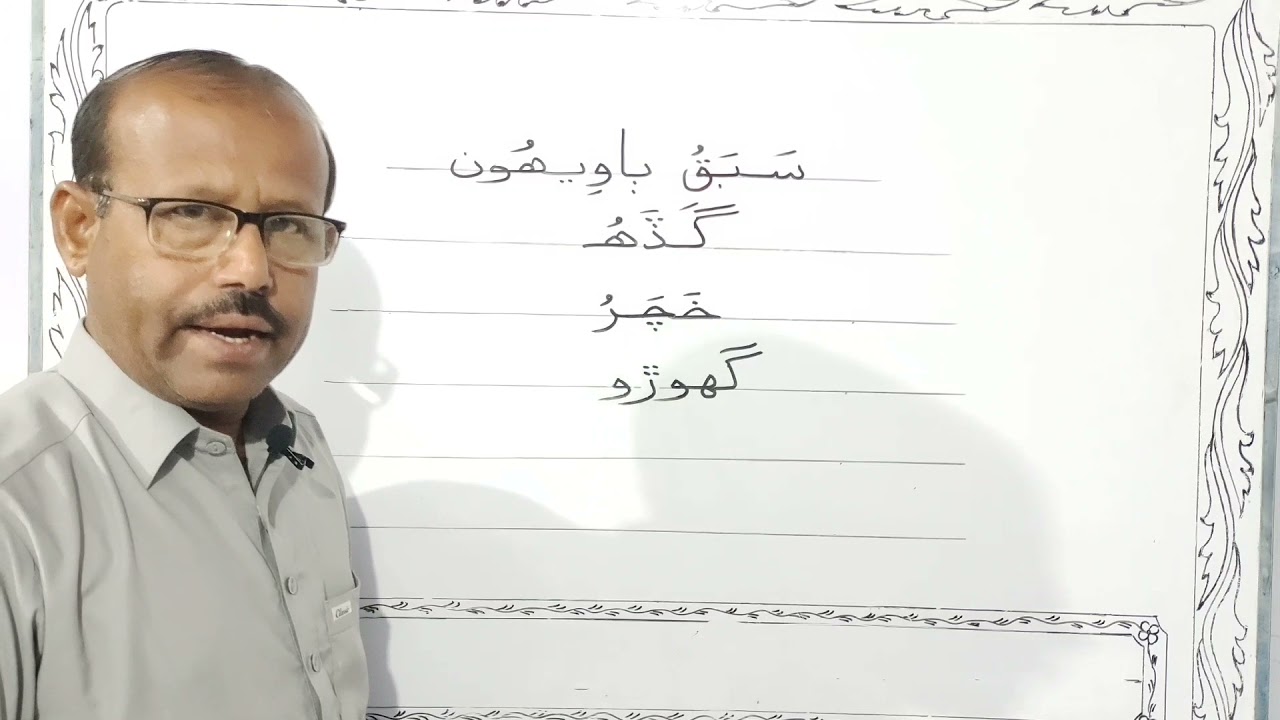 سَبَقُ ٻاوِيھُون
گَڏَھُ
خَچَرُ
گهوڙو